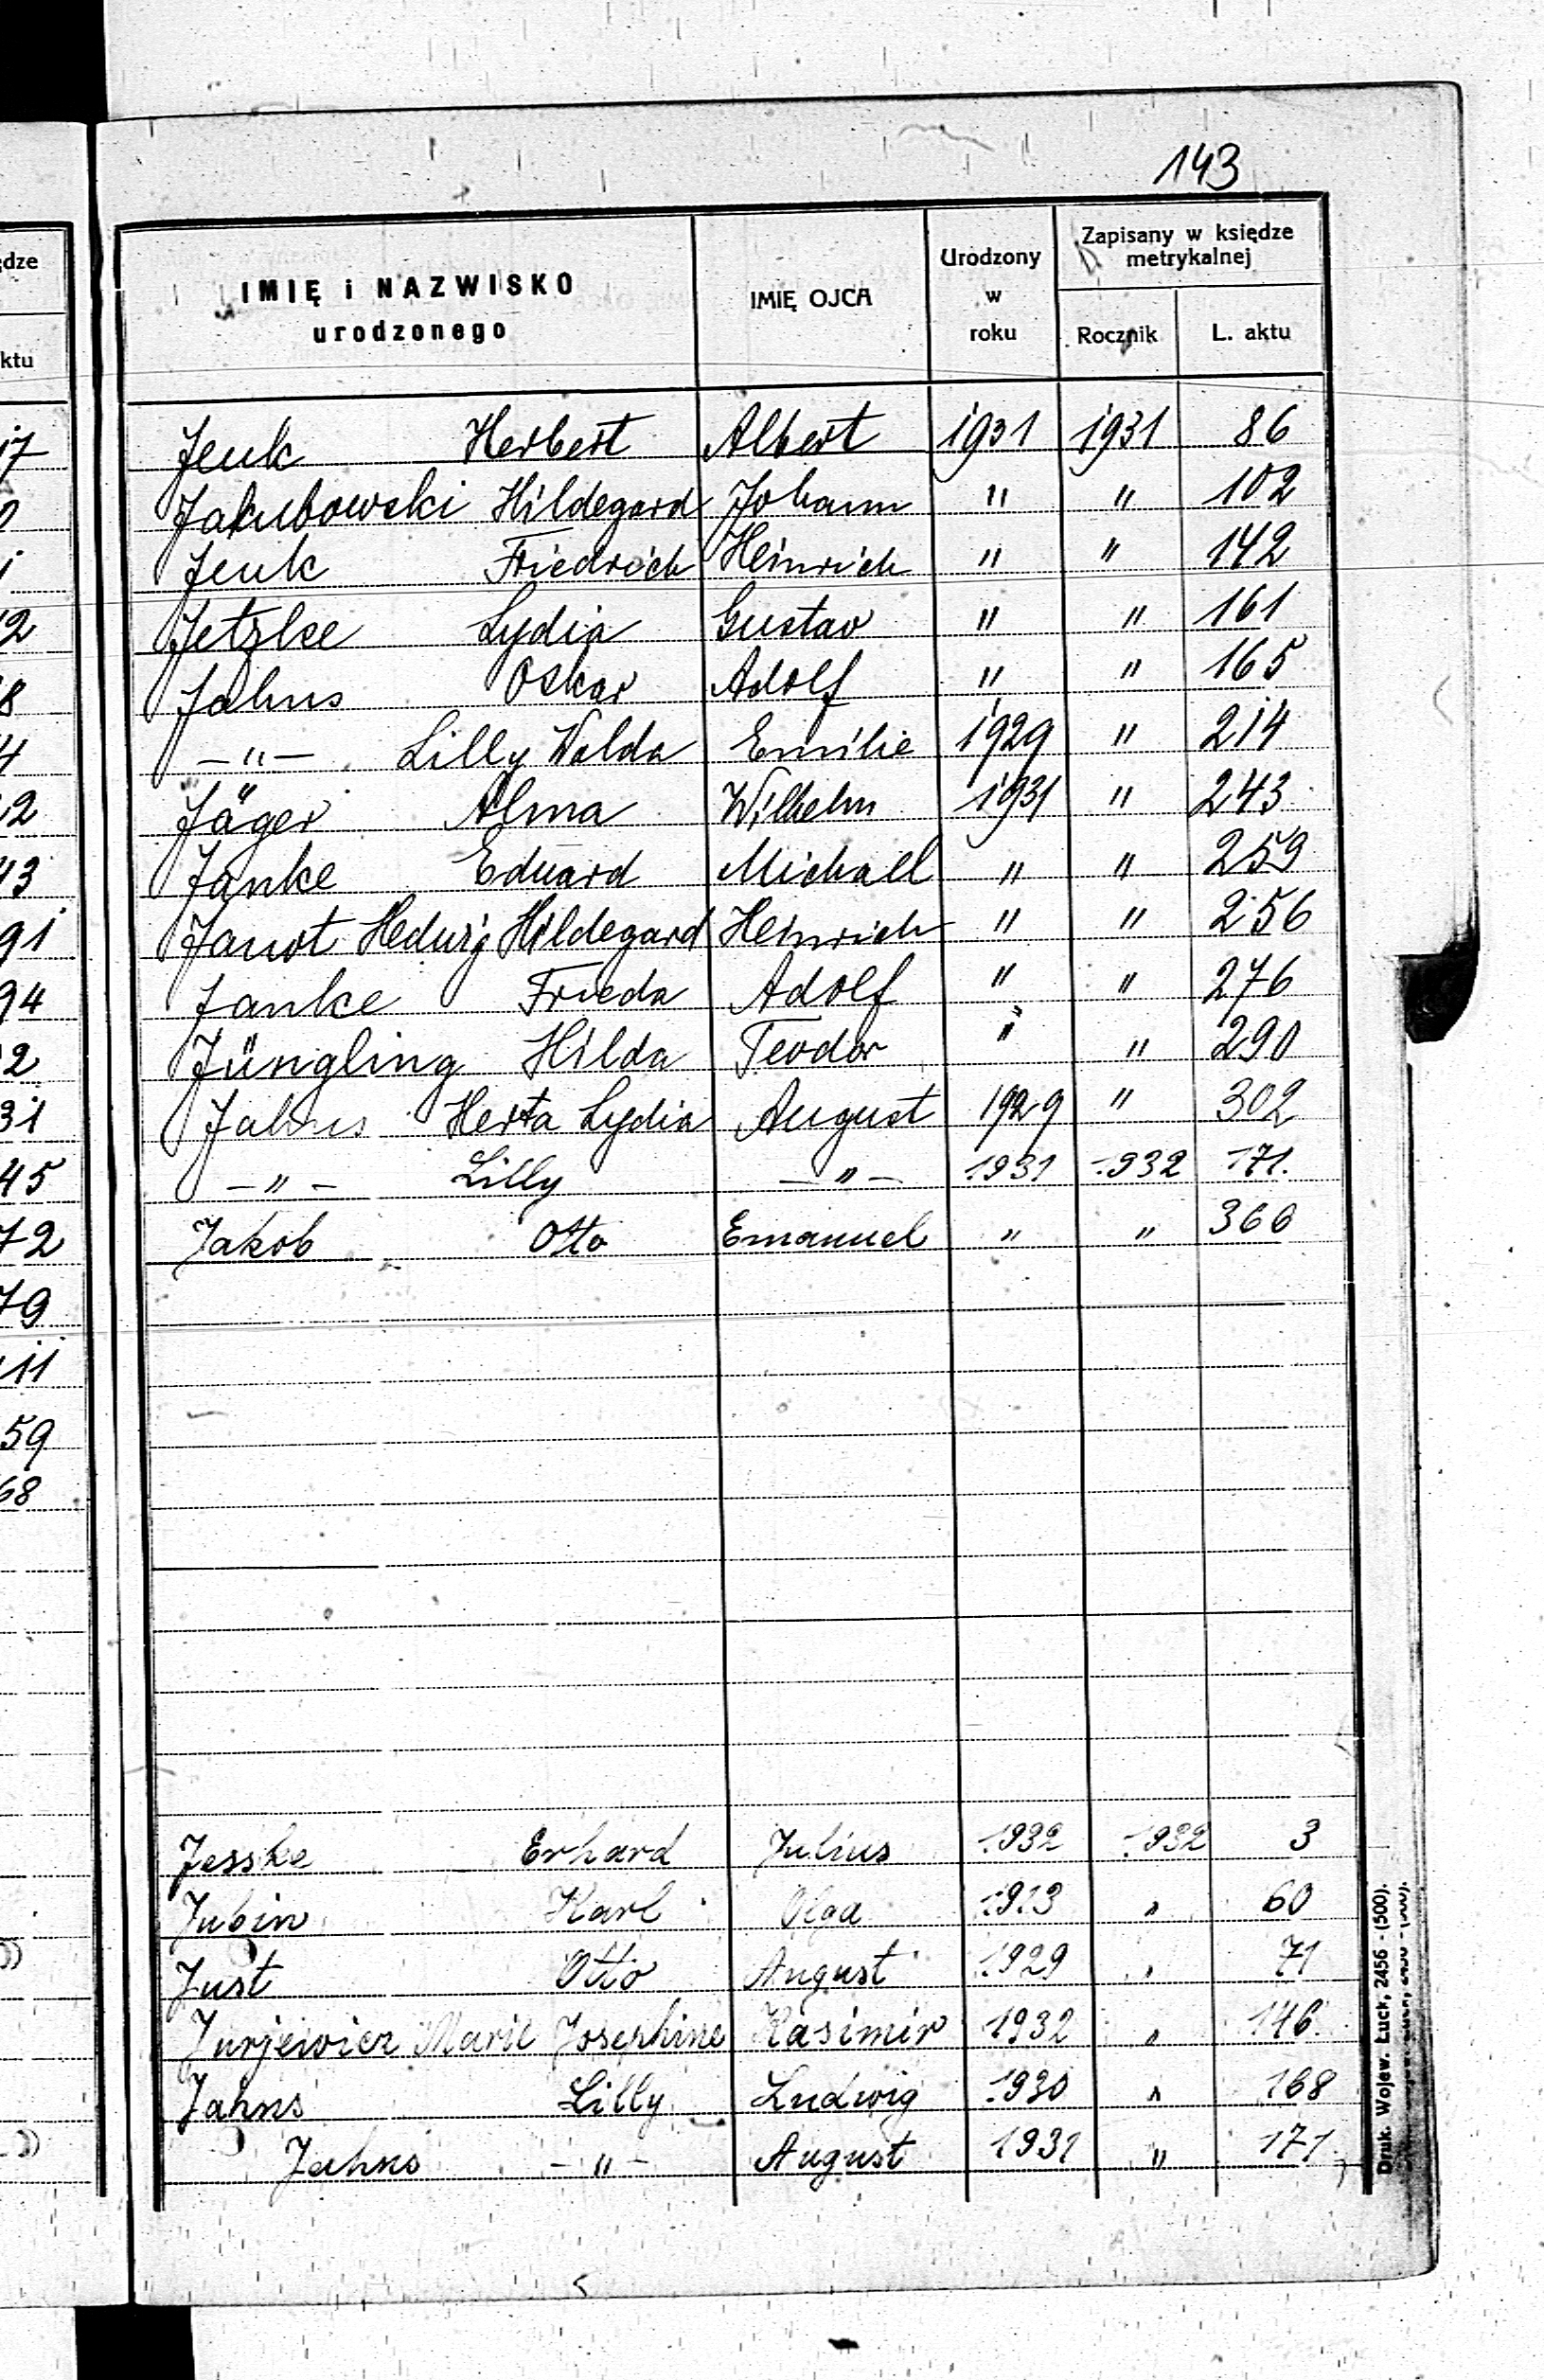 143
IMIĘ i NAZWISKO urodzonego | IMIĘ OJCA | Urodzony w roku | Zapisany w księdze metrykalnej
Rocznik | L. aktu
Jeuk Herbert Albert 1931 1931 86
Jakubowski Hildegard Johann " " 102
Jeuk Friedrich Heinrich " " 142
Jetzke Lydia Gustav " " 161
Jahns Oskar Adolf " " 165
-"- Lilly Walda Emilie 1929 " 214
Jäger Alma Wilhelm 1931 " 243
Janke Eduard Michael " " 259
Janot Hedwig Hildegard Heinrich " " 256
Janke Frieda Adolf " " 276
Jüngling Hilda Teodor " " 290
Jahns Herta Lydia August 1929 " 302
-"- Lilly -"- 1931 1932 171.
Jakob Otto Emanuel " " 366
Jesske Erhard Julius 1932 1932 3
Jubin Karl Olga 1913 " 60
Just Otto August 1929 " 71
Jurjewicz Marie Josephine Kasimir 1932 " 146
Jahns Lilly Ludwig 1930 " 168
Jahns -"- August 1931 " 171
Druk. Wojew. Łuck, 2456 - (500).
ędze
ktu
17
2
8
4
2
43
91
94
2
31
45
72
79
11
59
68